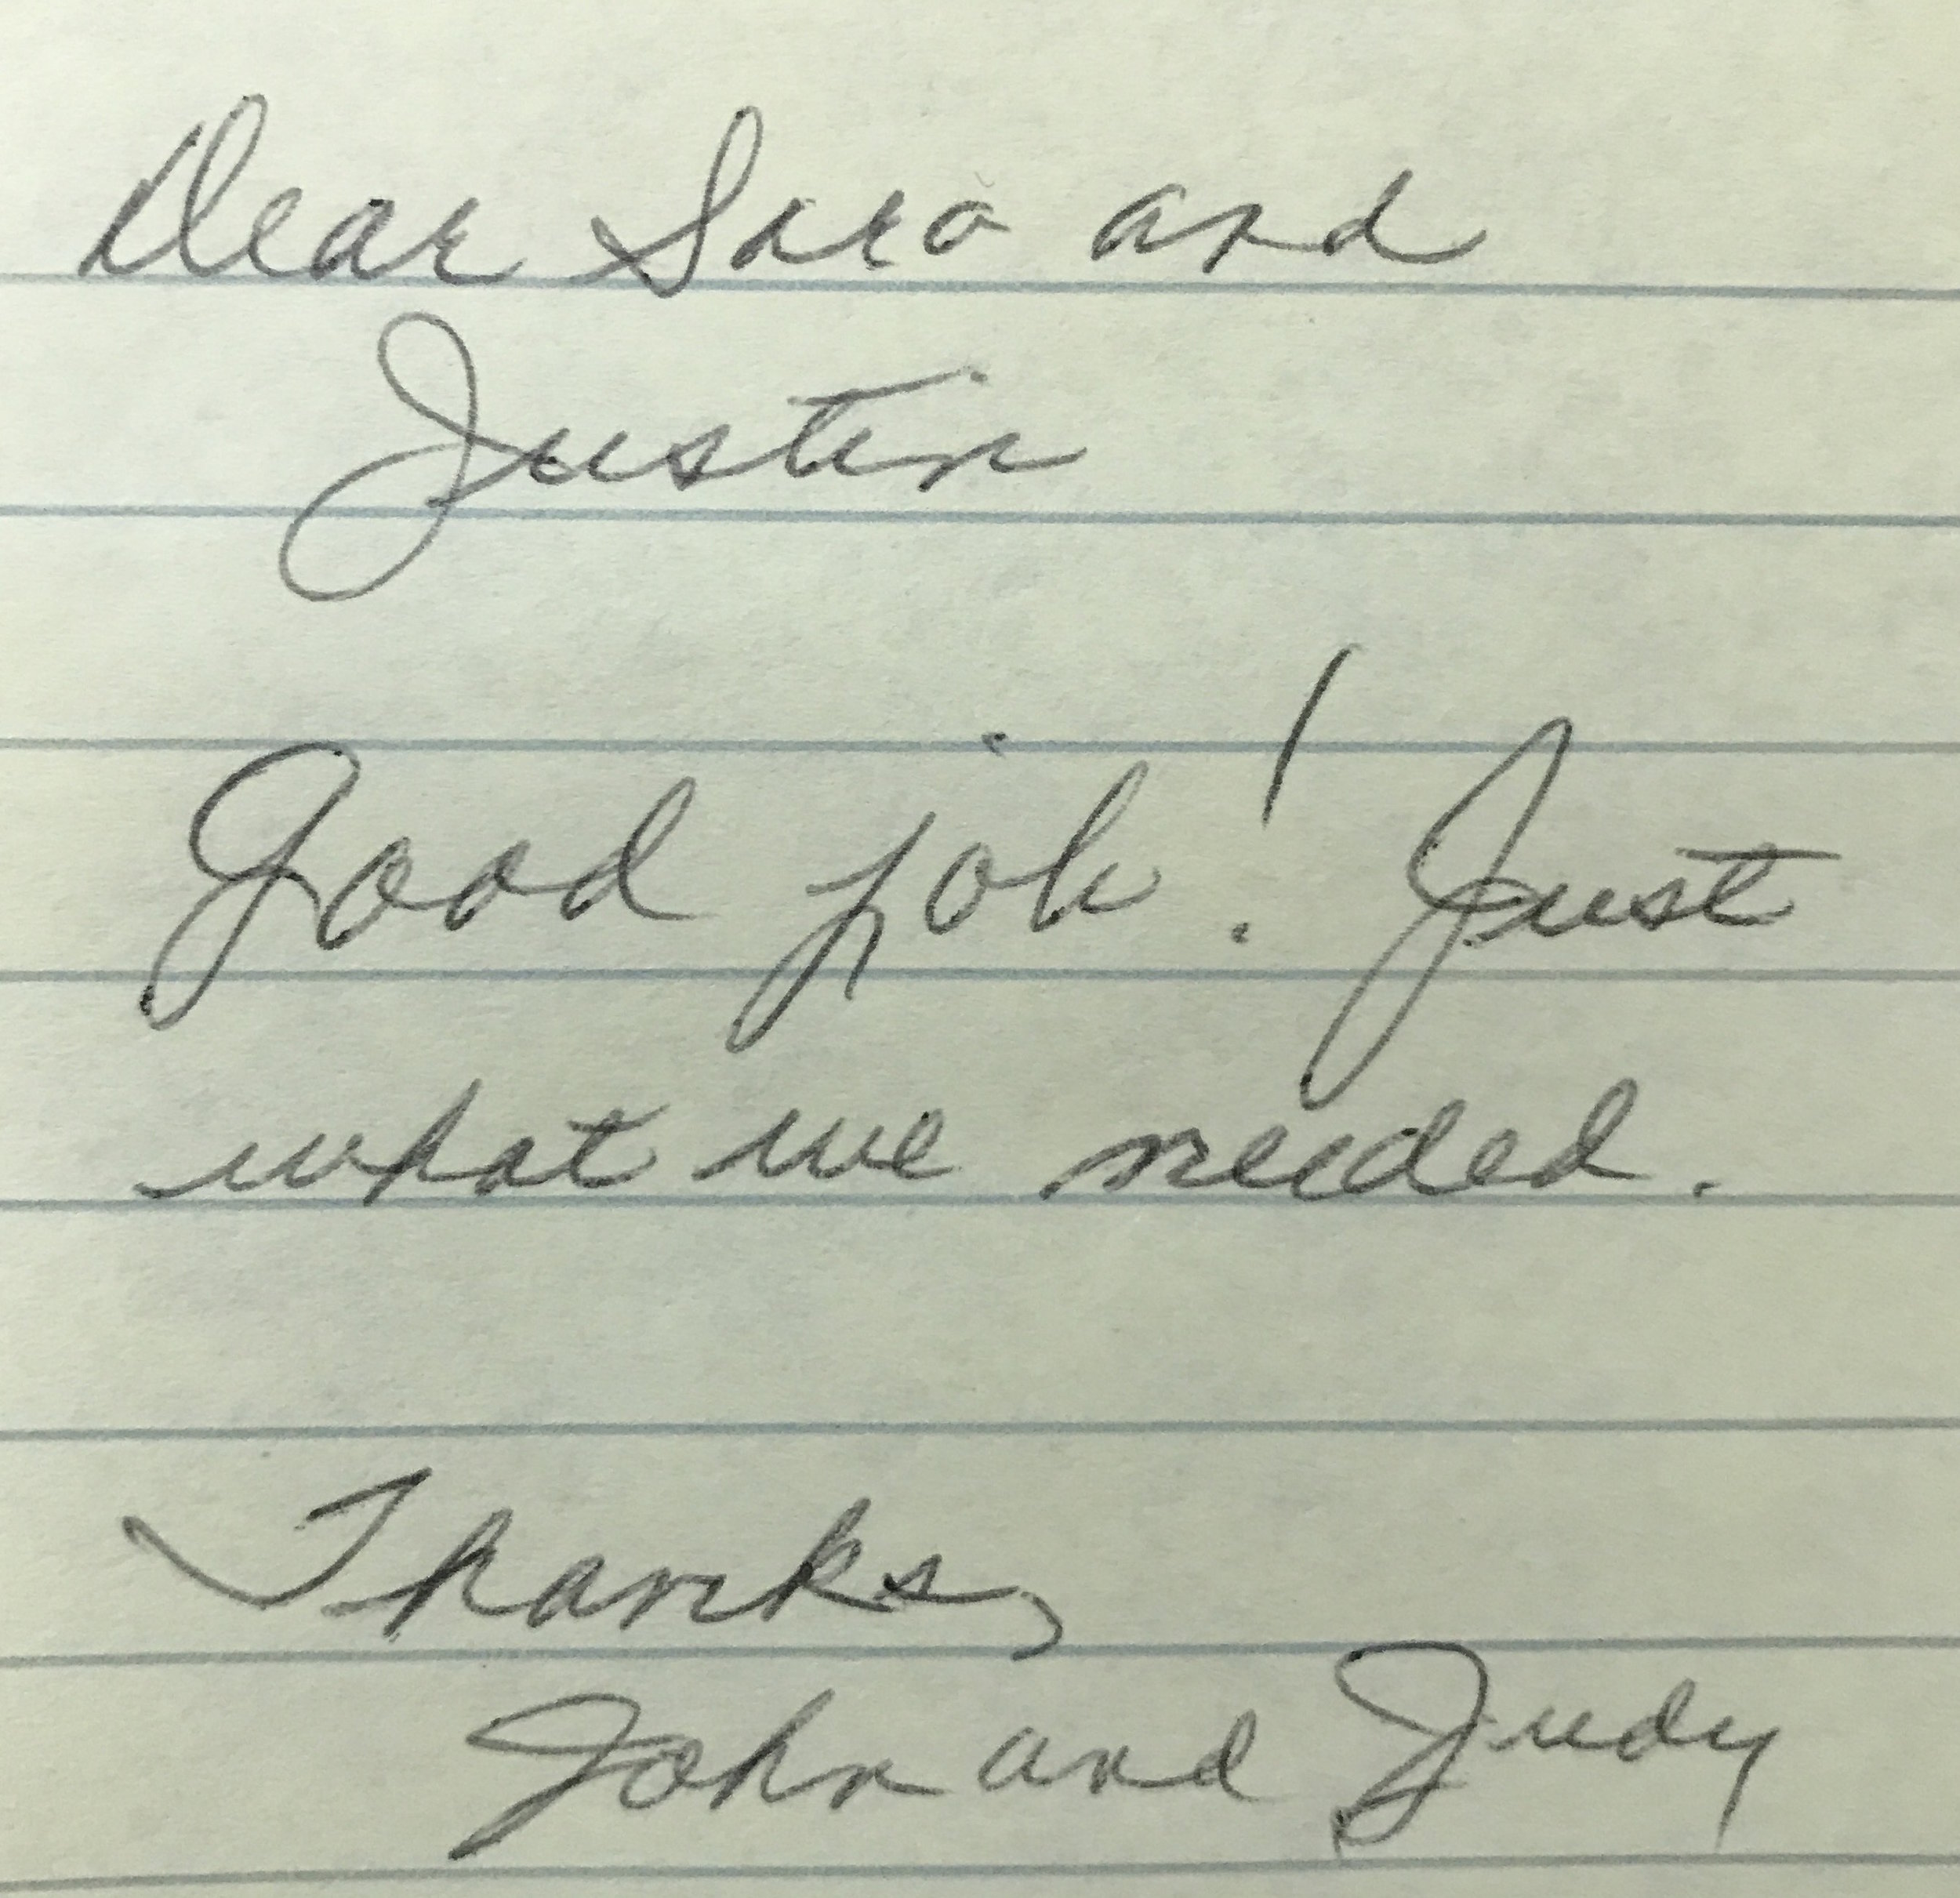 Dear Sara and
Justin
Good job! Just
what we needed.
Thanks,
John and Judy